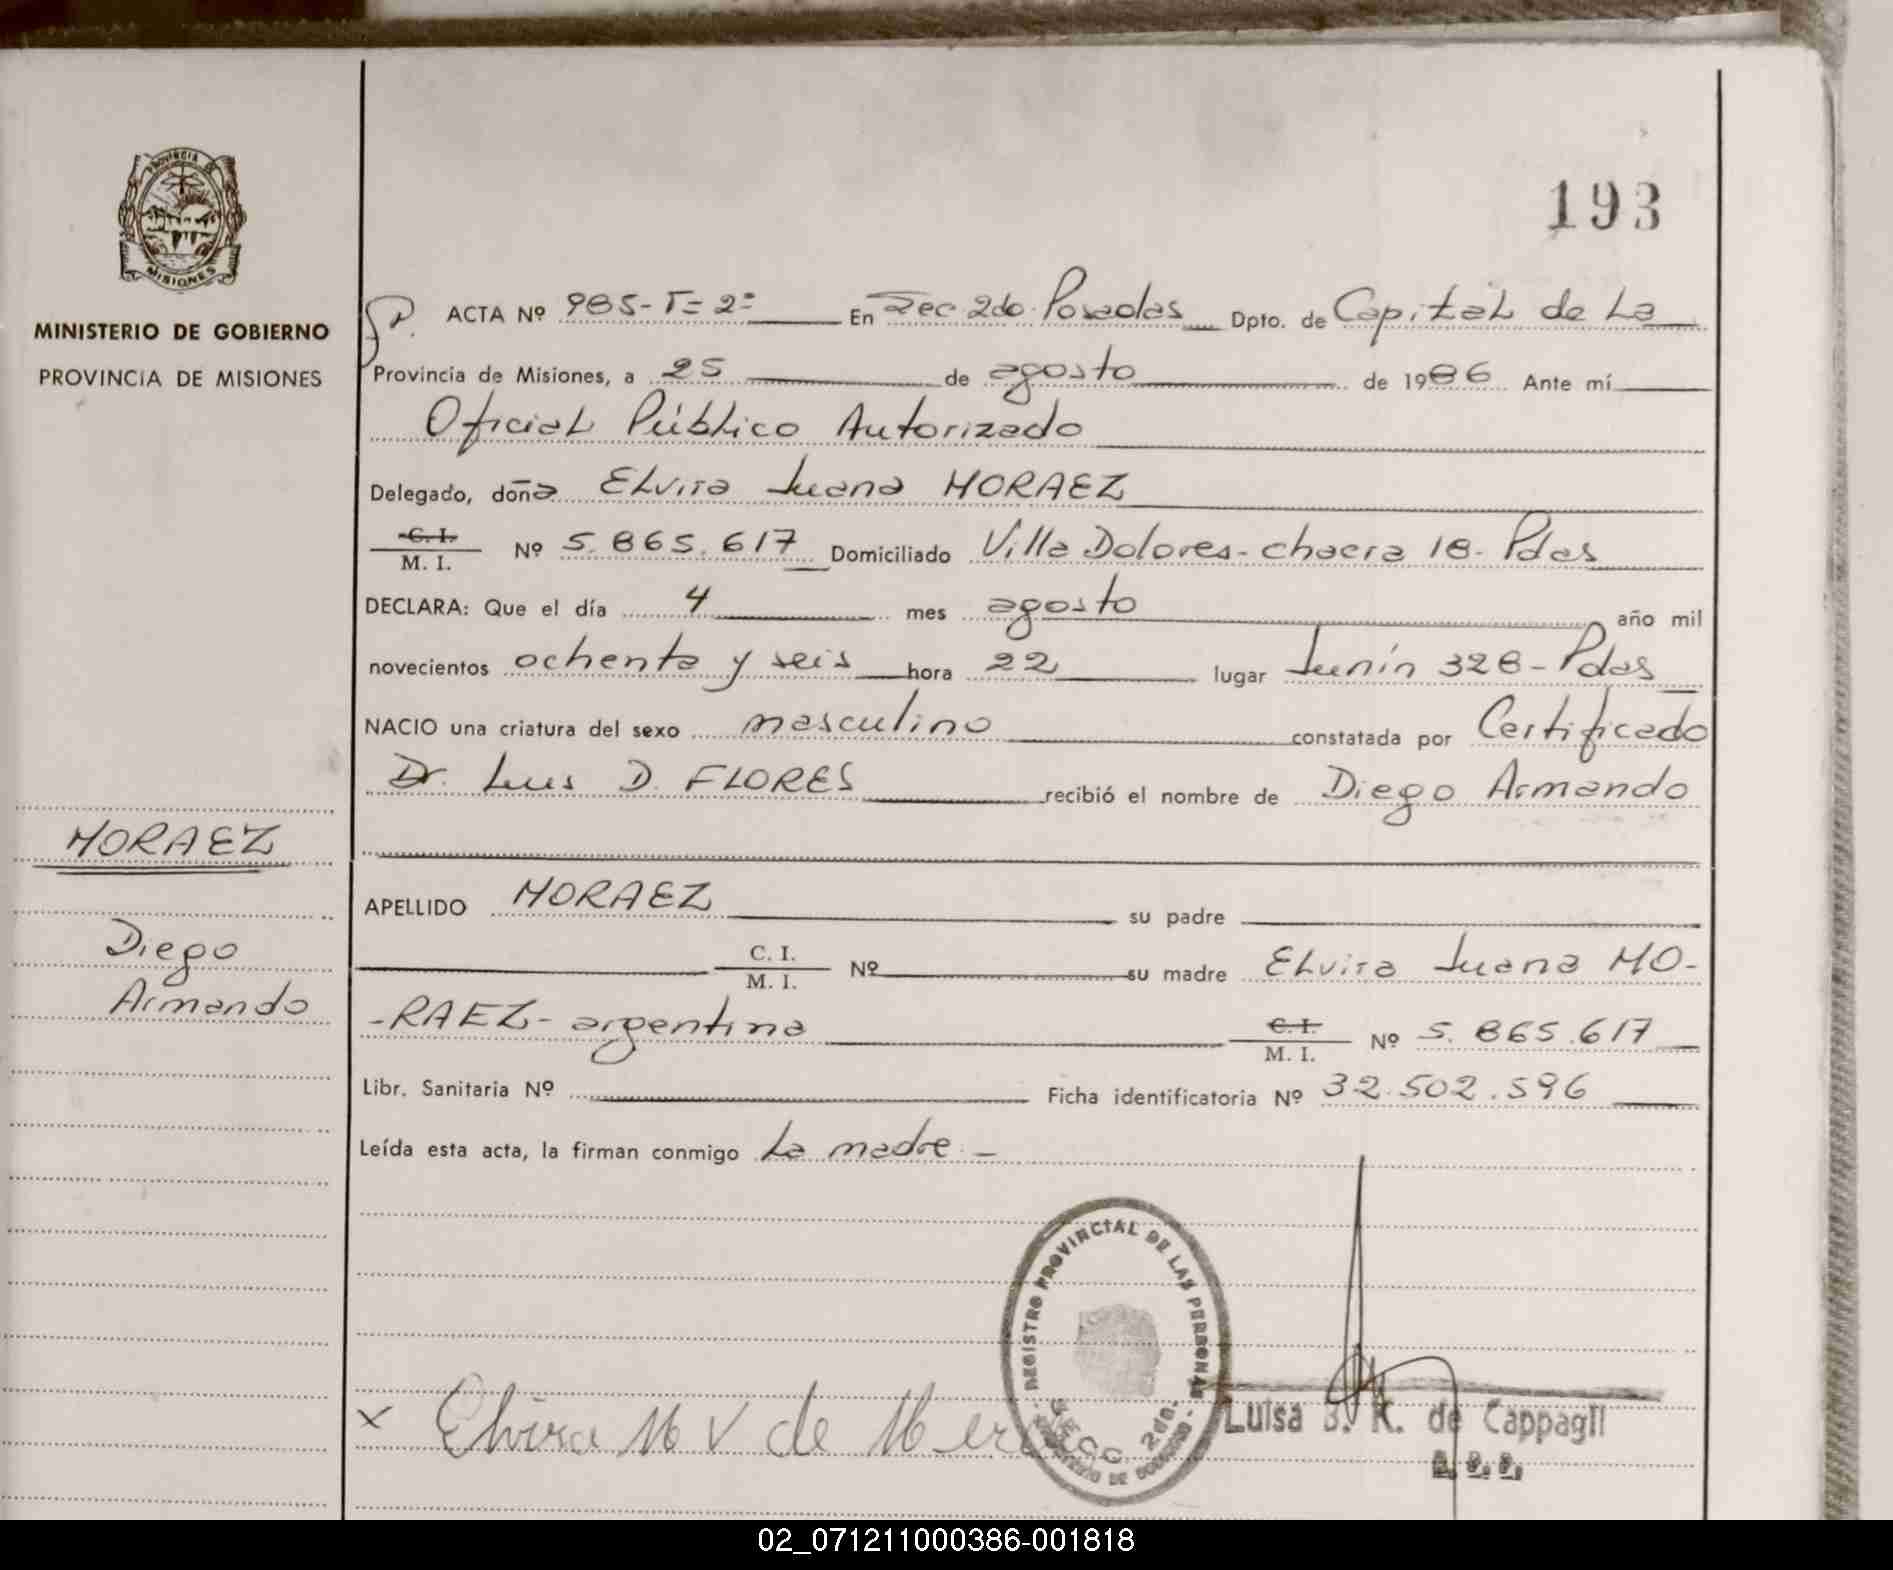 193
PROVINCIA DE
MISIONES
MINISTERIO DE GOBIERNO
PROVINCIA DE MISIONES
ACTA Nº 985-T=2= En Sec 2do. Posadas Dpto. de Capital de La
Provincia de Misiones, a 25 de agosto de 1986 Ante mí
Oficial Público Autorizado
Delegado, doña Elvira Juana MORAEZ
C. I.
M. I. Nº 5.865.617 Domiciliado Villa Dolores-chacra 18-Pdas
DECLARA: Que el día 4 mes agosto año mil
novecientos ochenta y seis hora 22 lugar Junín 328-Pdas
NACIO una criatura del sexo masculino constatada por Certificado
Dr. Luis D. FLORES recibió el nombre de Diego Armando
MORAEZ
Diego
Armando
APELLIDO MORAEZ su padre
C. I.
M. I. Nº su madre Elvira Juana MO-
-RAEZ- argentina C. I.
M. I. Nº 5.865.617
Libr. Sanitaria Nº Ficha identificatoria Nº 32.502.596
Leída esta acta, la firman conmigo La madre.-
REGISTRO PROVINCIAL DE LAS PERSONAS
SECC. 2da.
x Elvira M V de
Luisa B. K. de Cappagli
02_071211000386-001818